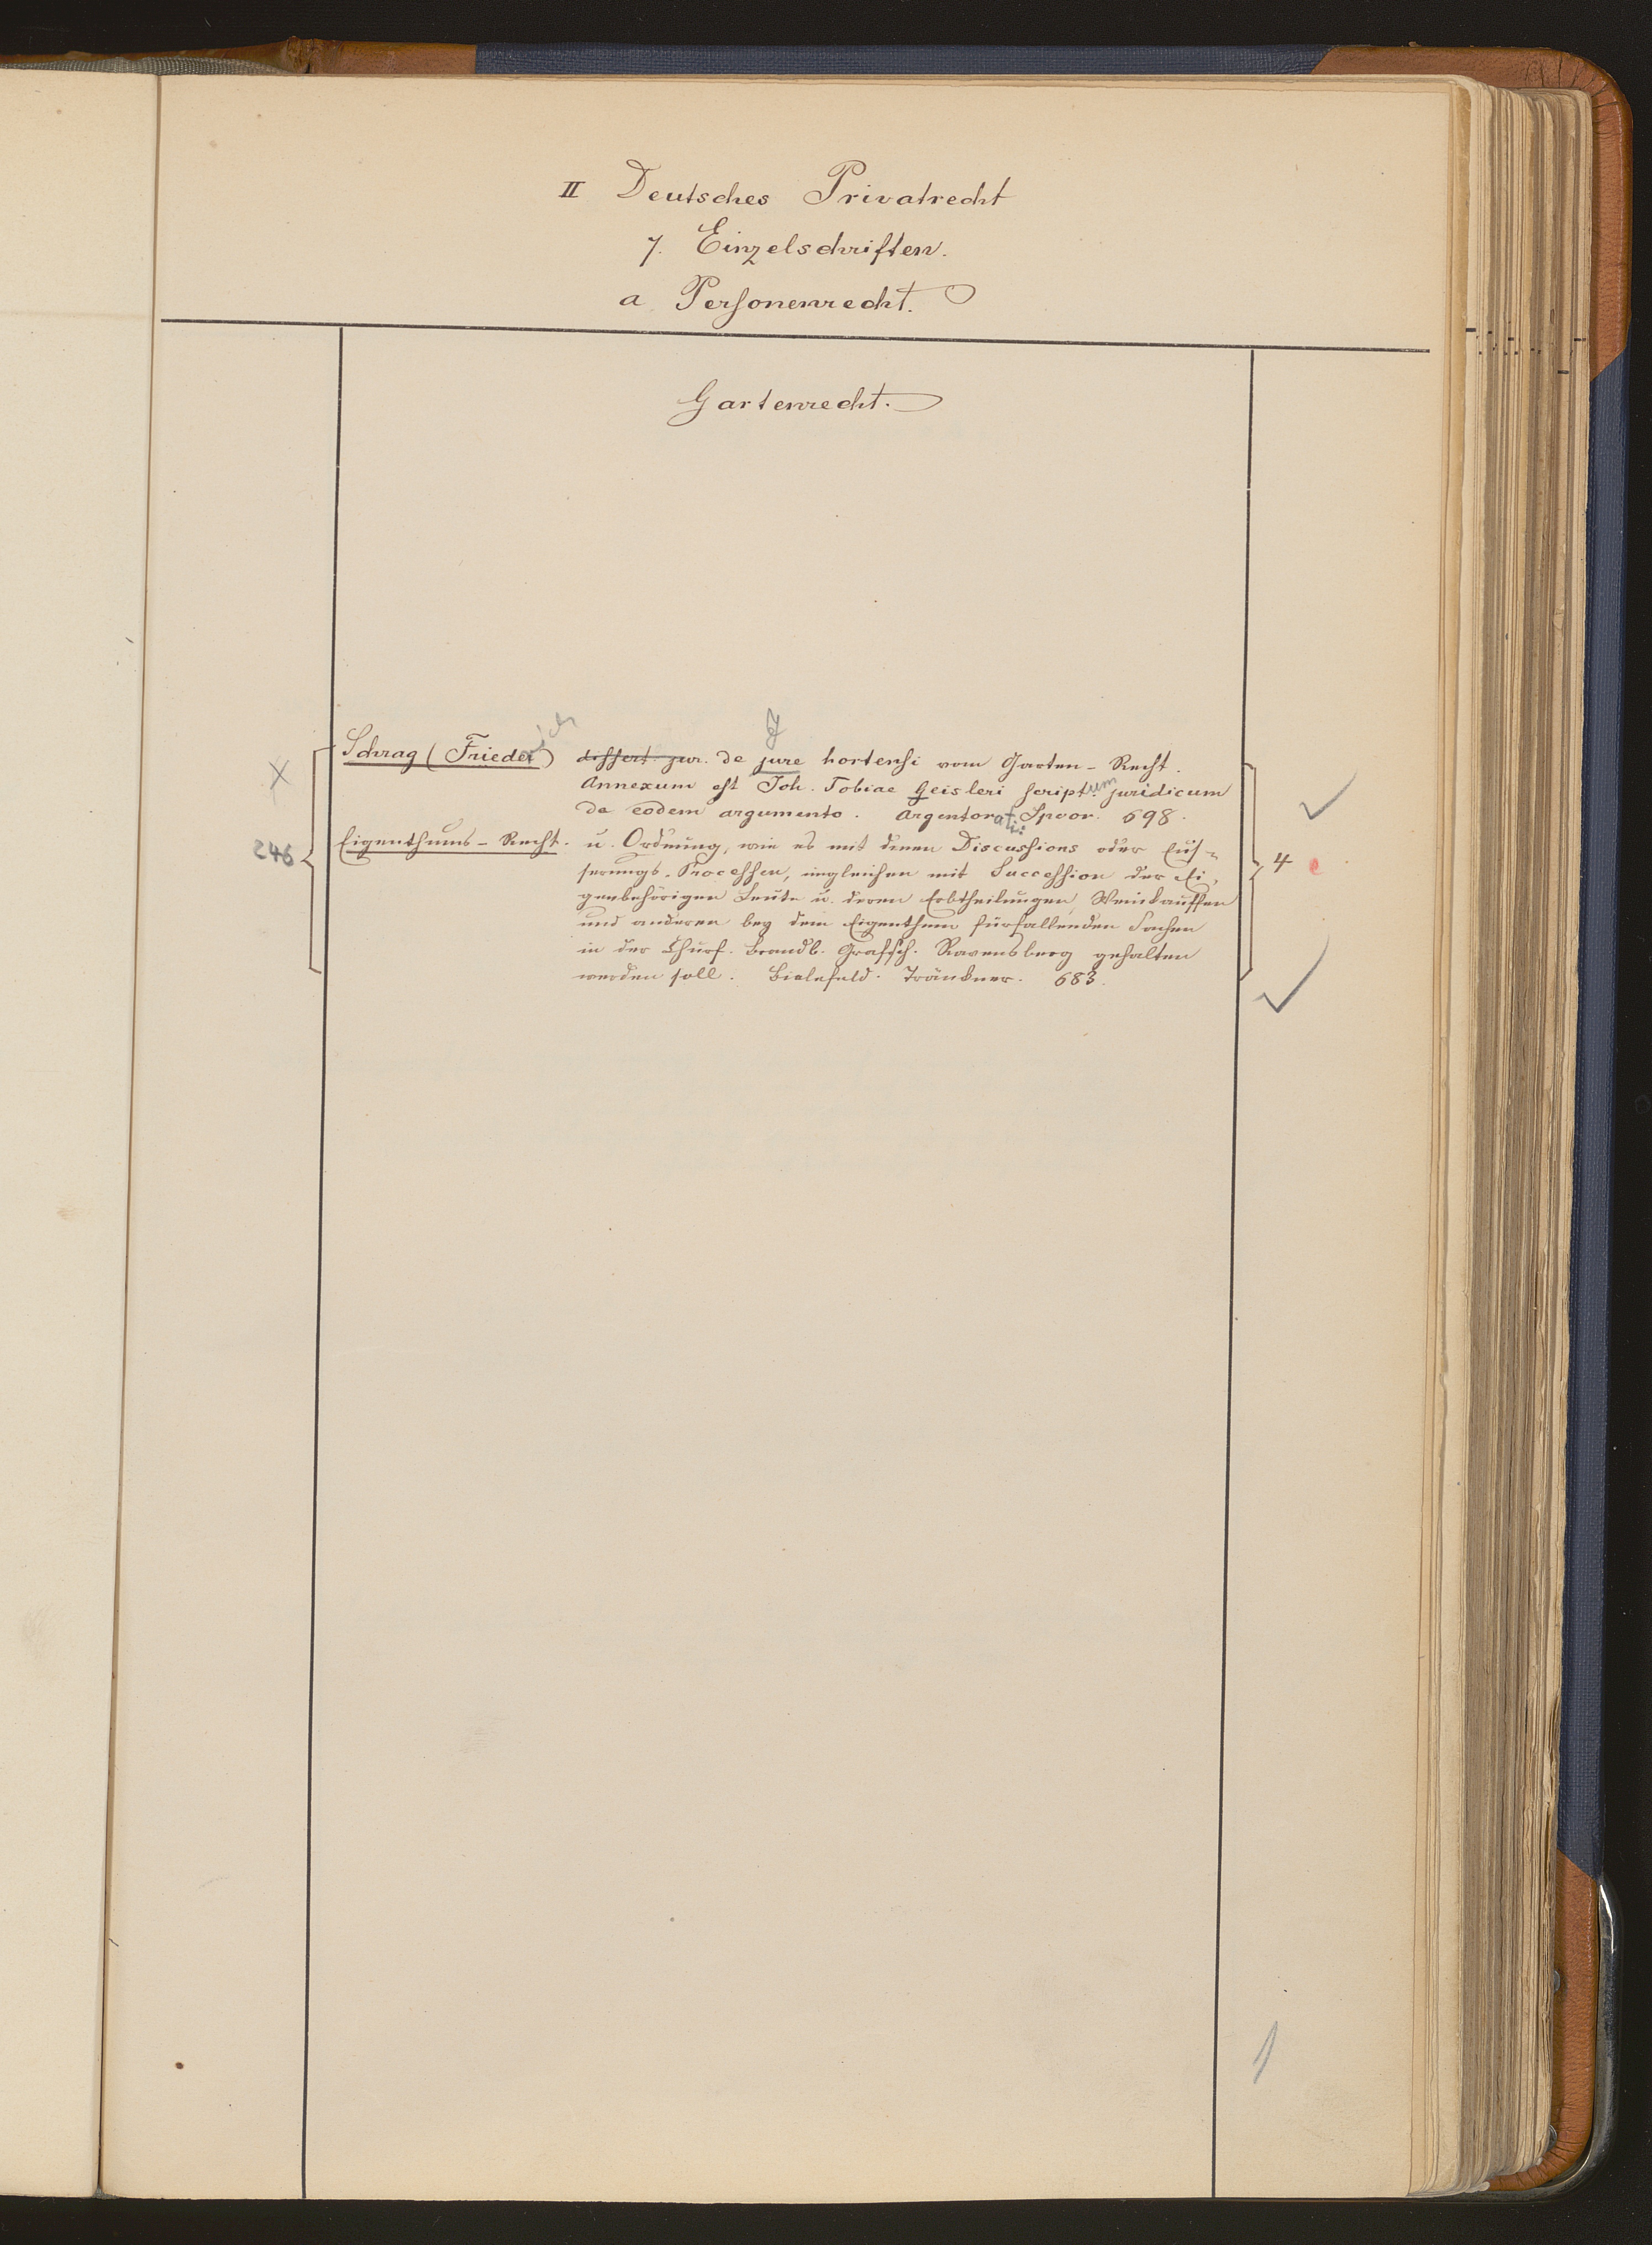 II Deutsches Privatrecht
7. Einzelschriften.
a. Personenrecht.
Gartenrecht.
Schrag (Friederich) dissert. jur. de jure hortensi vom Garten-Recht.
J
X
Annexum est Joh. Tobiae Geisleri scriptum juridicum
de eodem argumento. Argentorati: Spoor. 698.
246
Eigenthums-Recht. u. Ordnung, wie es mit denen Discussions oder Eus-
serungs-Processen, ingleichen mit Succession der Ei-
4
genbehörigen Leute u. deren Erbtheilungen, Weinkauffen
und anderen bey dem Eigenthum fürfallenden Sachen
in der Churf. Brandb. Grafsch. Ravensberg gehalten
werden soll. Bielefeld. Tränkner. 683.
1